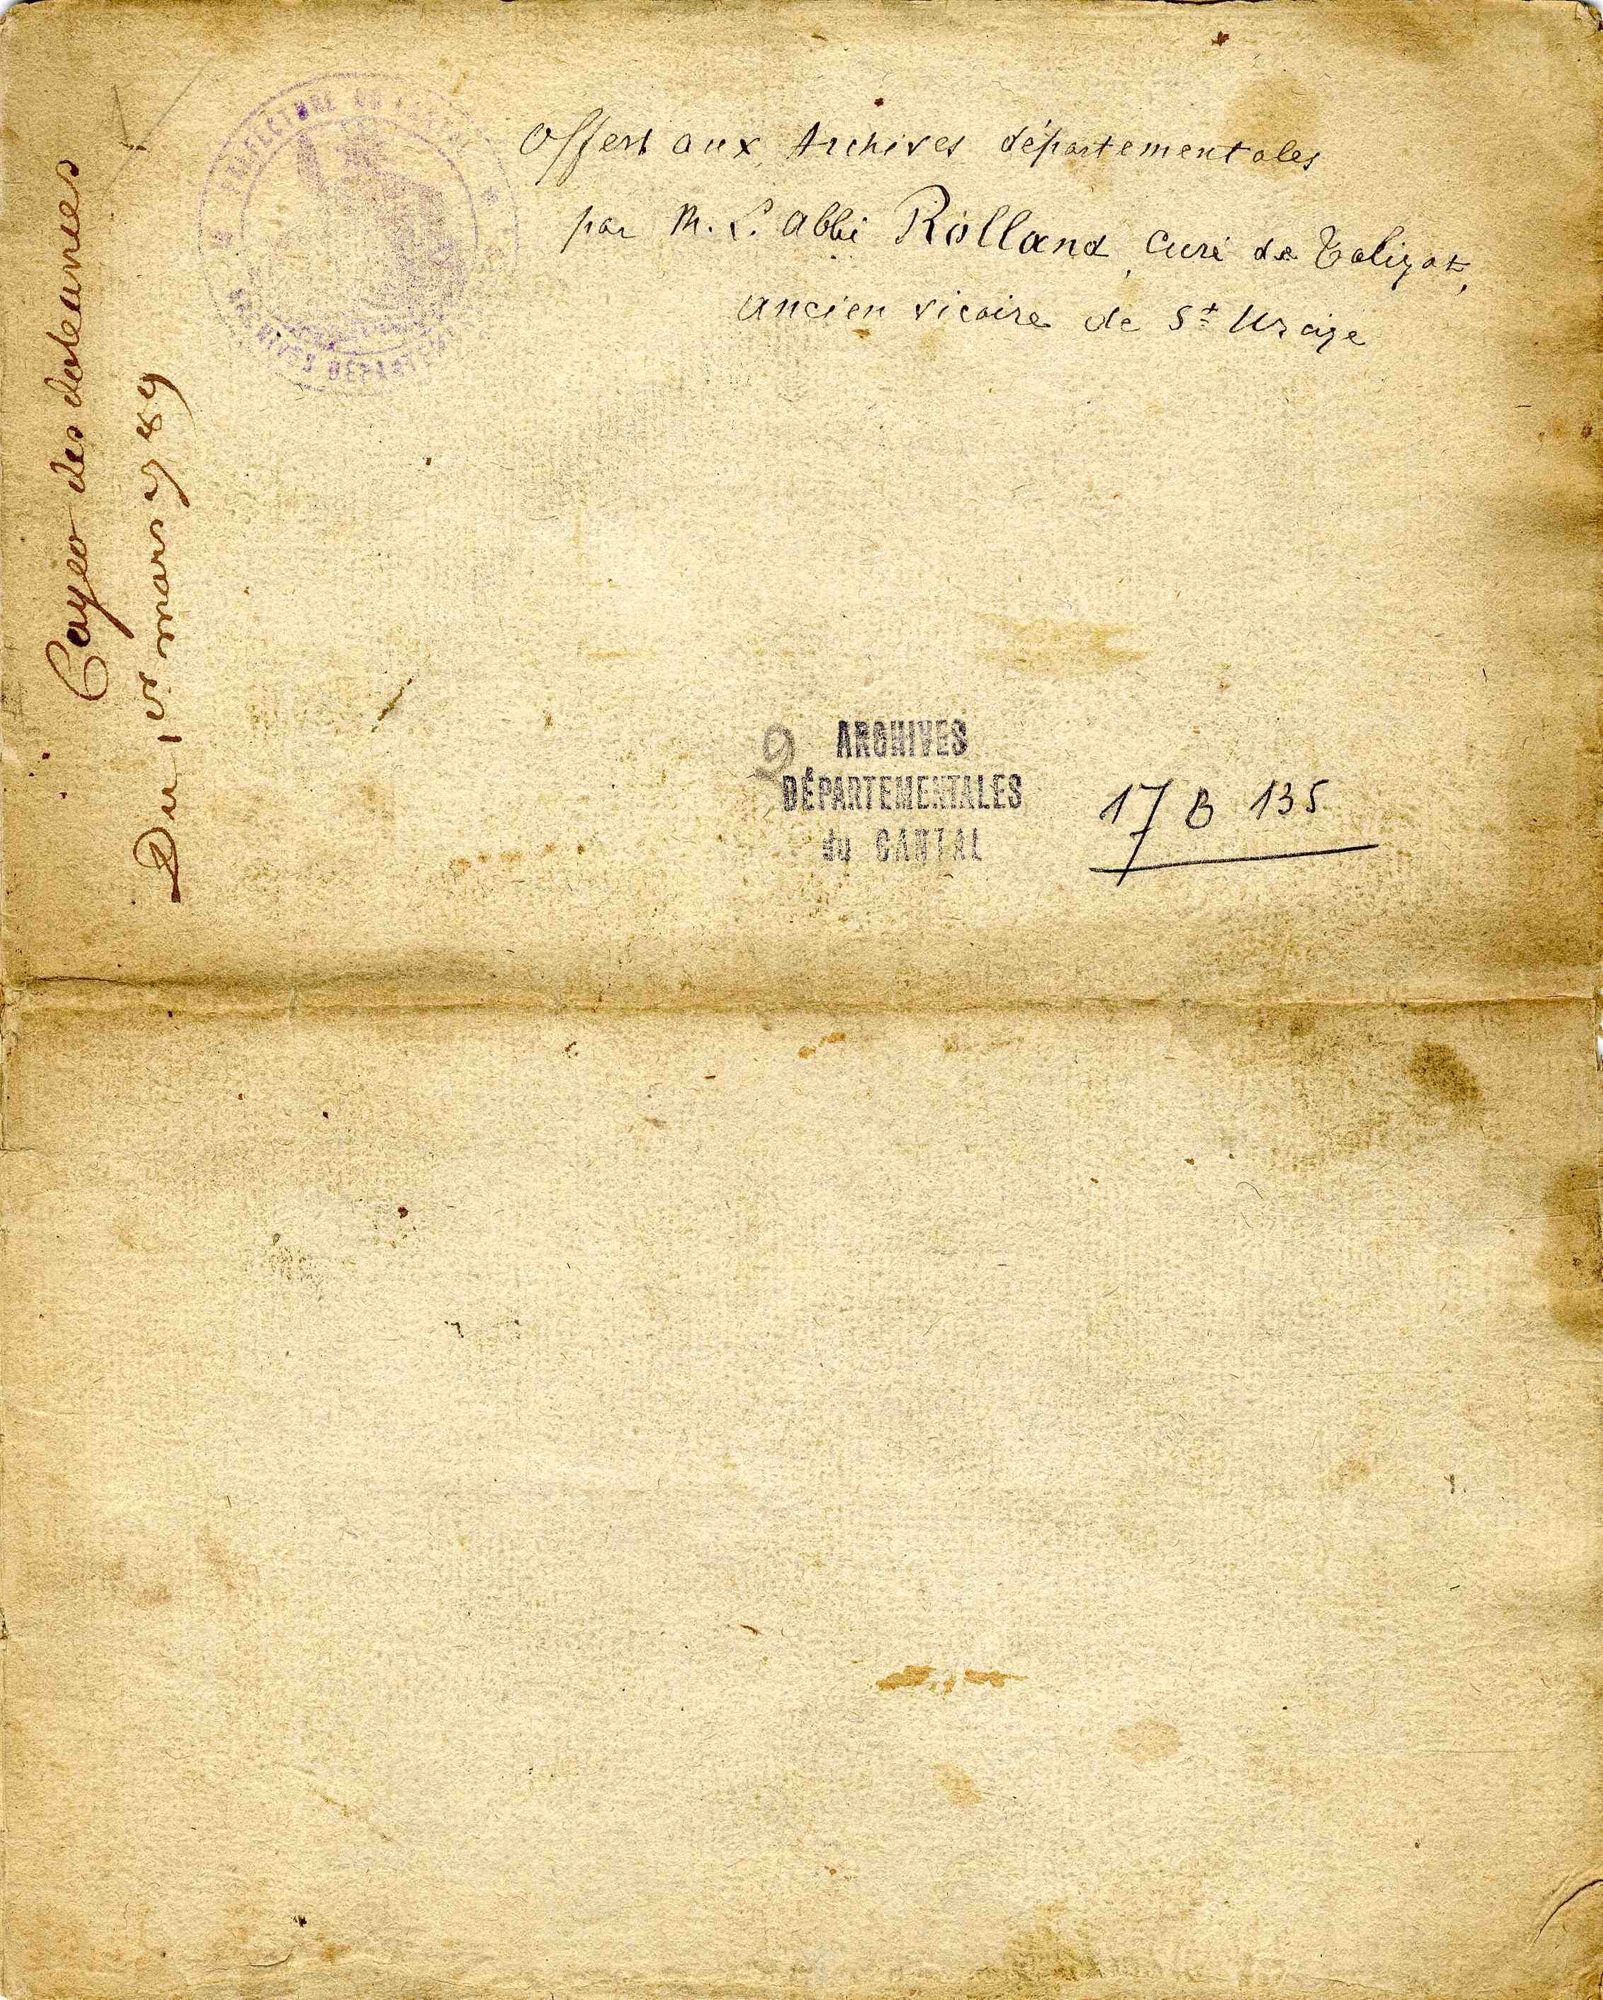 Offert aux Archives départementales
par M. L'abbé Rolland, curé de Talizat,
ancien vicaire de St Urcize
Cayer des doleances
Du 1er mars 1789
PREFECTURE DU CANTAL
ARCHIVES DÉPARTEMENTALES
9
ARCHIVES
DÉPARTEMENTALES
du CANTAL
17 B 135